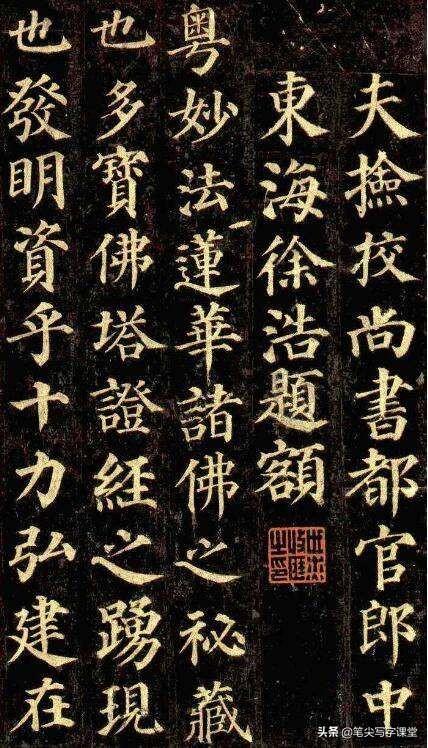 夫撿挍尚書都官郎中
東海徐浩題額
粵妙法蓮華諸佛之祕藏
也多寶佛塔證經之踴現
也發明資乎十力弘建在
头条 @笔尖写字课堂